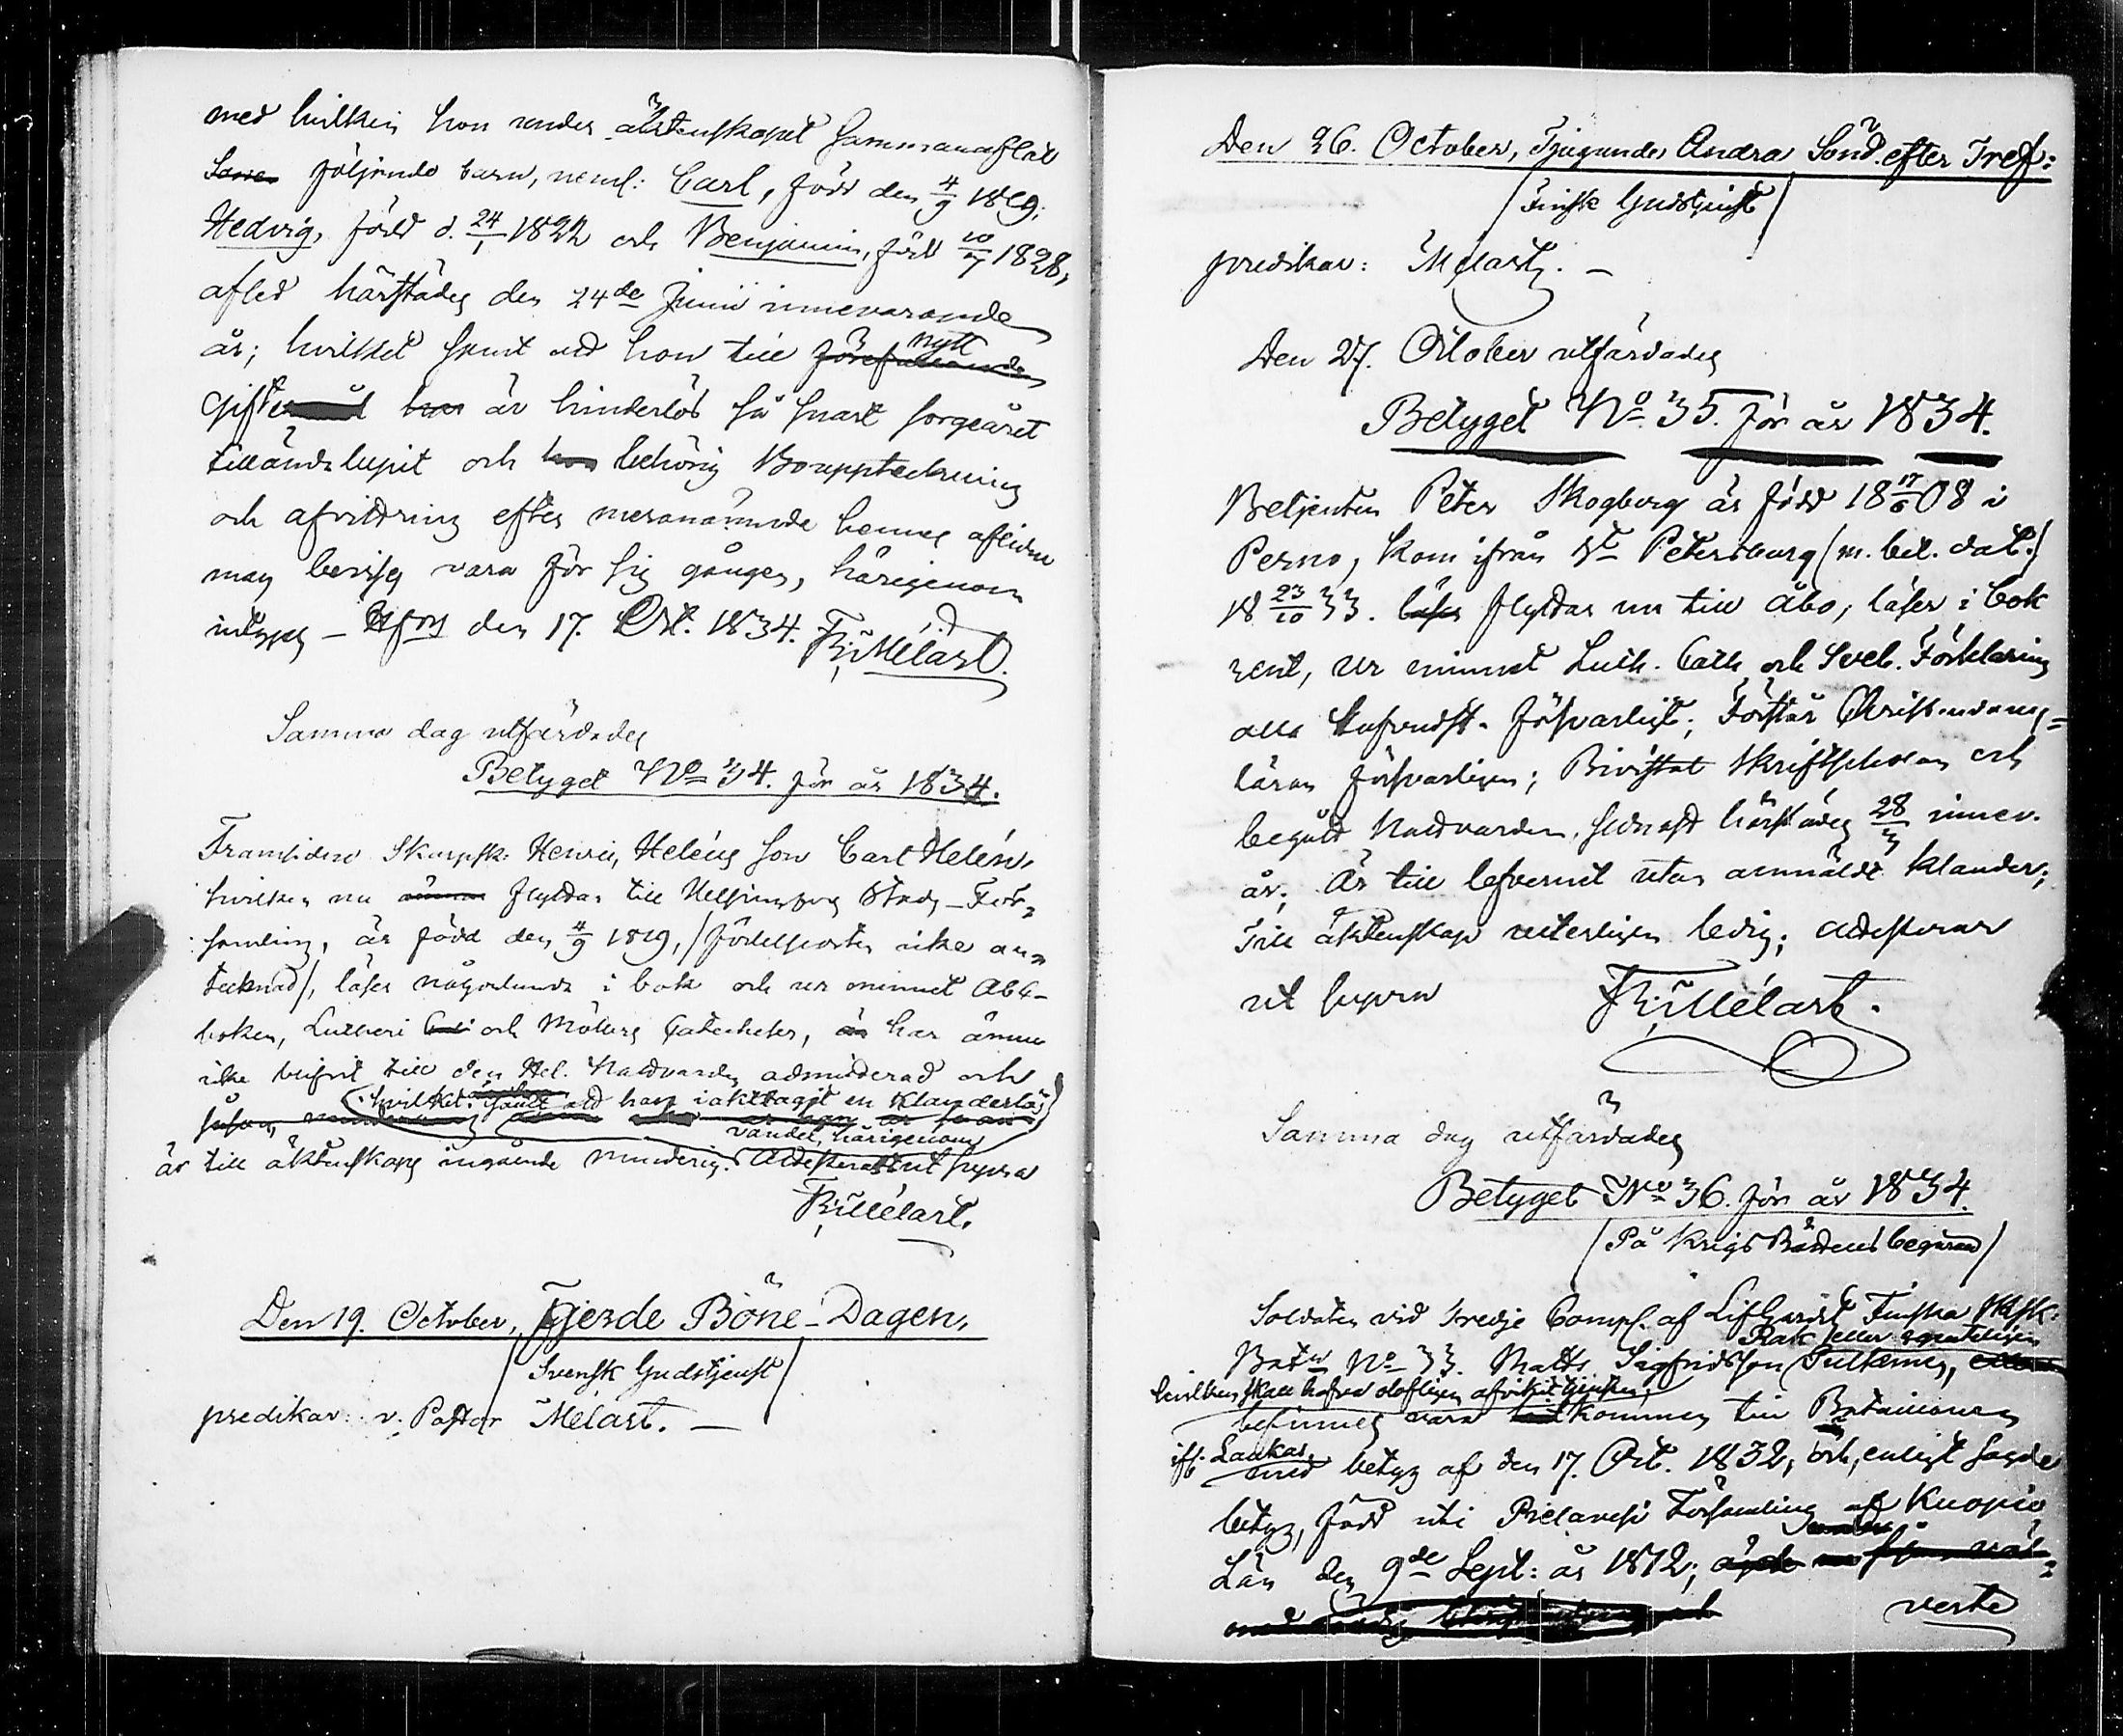 med hvilken hon under äktenskapet sammanaflat
följande barn, neml: Carl, född den 4/9 1819;
Hedvig, född d. 24/1 1822 och Benjamin, född 10/7 1828,
afled härstädes den 24de Junii innevarande
år; hvilket samt att hon till nytt
gifte är hinderlös så snart sorgeåret
tilländalupit och behörig Bouppteckning
och afvittring efter meranämnde hennes aflidne
man bevises vara för sig gången, härigenom
intygas – Hfors den 17. Oct. 1834. F. Mélart.
Samma dag utfärdades
Betyget No 34. för år 1834.
Framlidne Skarpsk: Henric Heléns son Carl Helén,
hvilken nu flyttar till Helsingfors Stads För-
samling, är född den 4/9 1819, /födelseorten icke an-
tecknad/, läser någorlunda i bok och ur minnet Abc-
boken, Lutheri och Möllers Catecheser, har ännu
icke blifvit till den Hel. Nattvarden admitterad och
hvilket, samt att han iakttagit en klanderlös
vandel, härigenom
är till äktenskaps ingående minderig. Attesteras ut supra
F. Mélart.
Den 19. October, Fjerde Böne-Dagen,
/Svensk Gudstjenst/
predikar: v. Pastor Mélart. –
Den 26. October, Tjugunde Andra Sönd. efter Tref:
/Finsk Gudstjenst/
predikar: Melart. –
Den 27. October utfärdades
Betyget No. 35. för år 1834.
Betjenten Peter Skogberg är född 18 17/6 08 i
Perno, kom ifrån St Petersburg /m. bet. dat./
18 23/10 33. flyttar nu till Åbo, läser i bok
rent, ur minnet Luth. Cath. och Sveb. Förklaring
alla hufvudst. försvarligt; Förstår Christendoms-
läran försvarligen; Bivistat Skriftskolan och
begått Nattvarden sednast härstädes 28/3 innev.
år; Är till lefvernet utan anmäldt klander;
Till äktenskap veterligen ledig; attesteras
ut supra F. Mélart.
Samma dag utfärdades
Betyget No 36. för år 1834.
/På Krigs Rättens begäran/
Soldaten vid Tredje Comp. af Lif Gardets Finska SkSk:
Batn No 33. Matts Sigfridsson Pulkinen,
hvilken skall hafva olofligen afvikit tjensten,
befinnes vara kommen till Bataillonen
ifr. Laukas
med betyg af den 17. Oct. 1832, och, enligt sagde
betyg, född uti Pielavesi Församling af Kuopio
Län den 9de Sept: år 1812;
verte